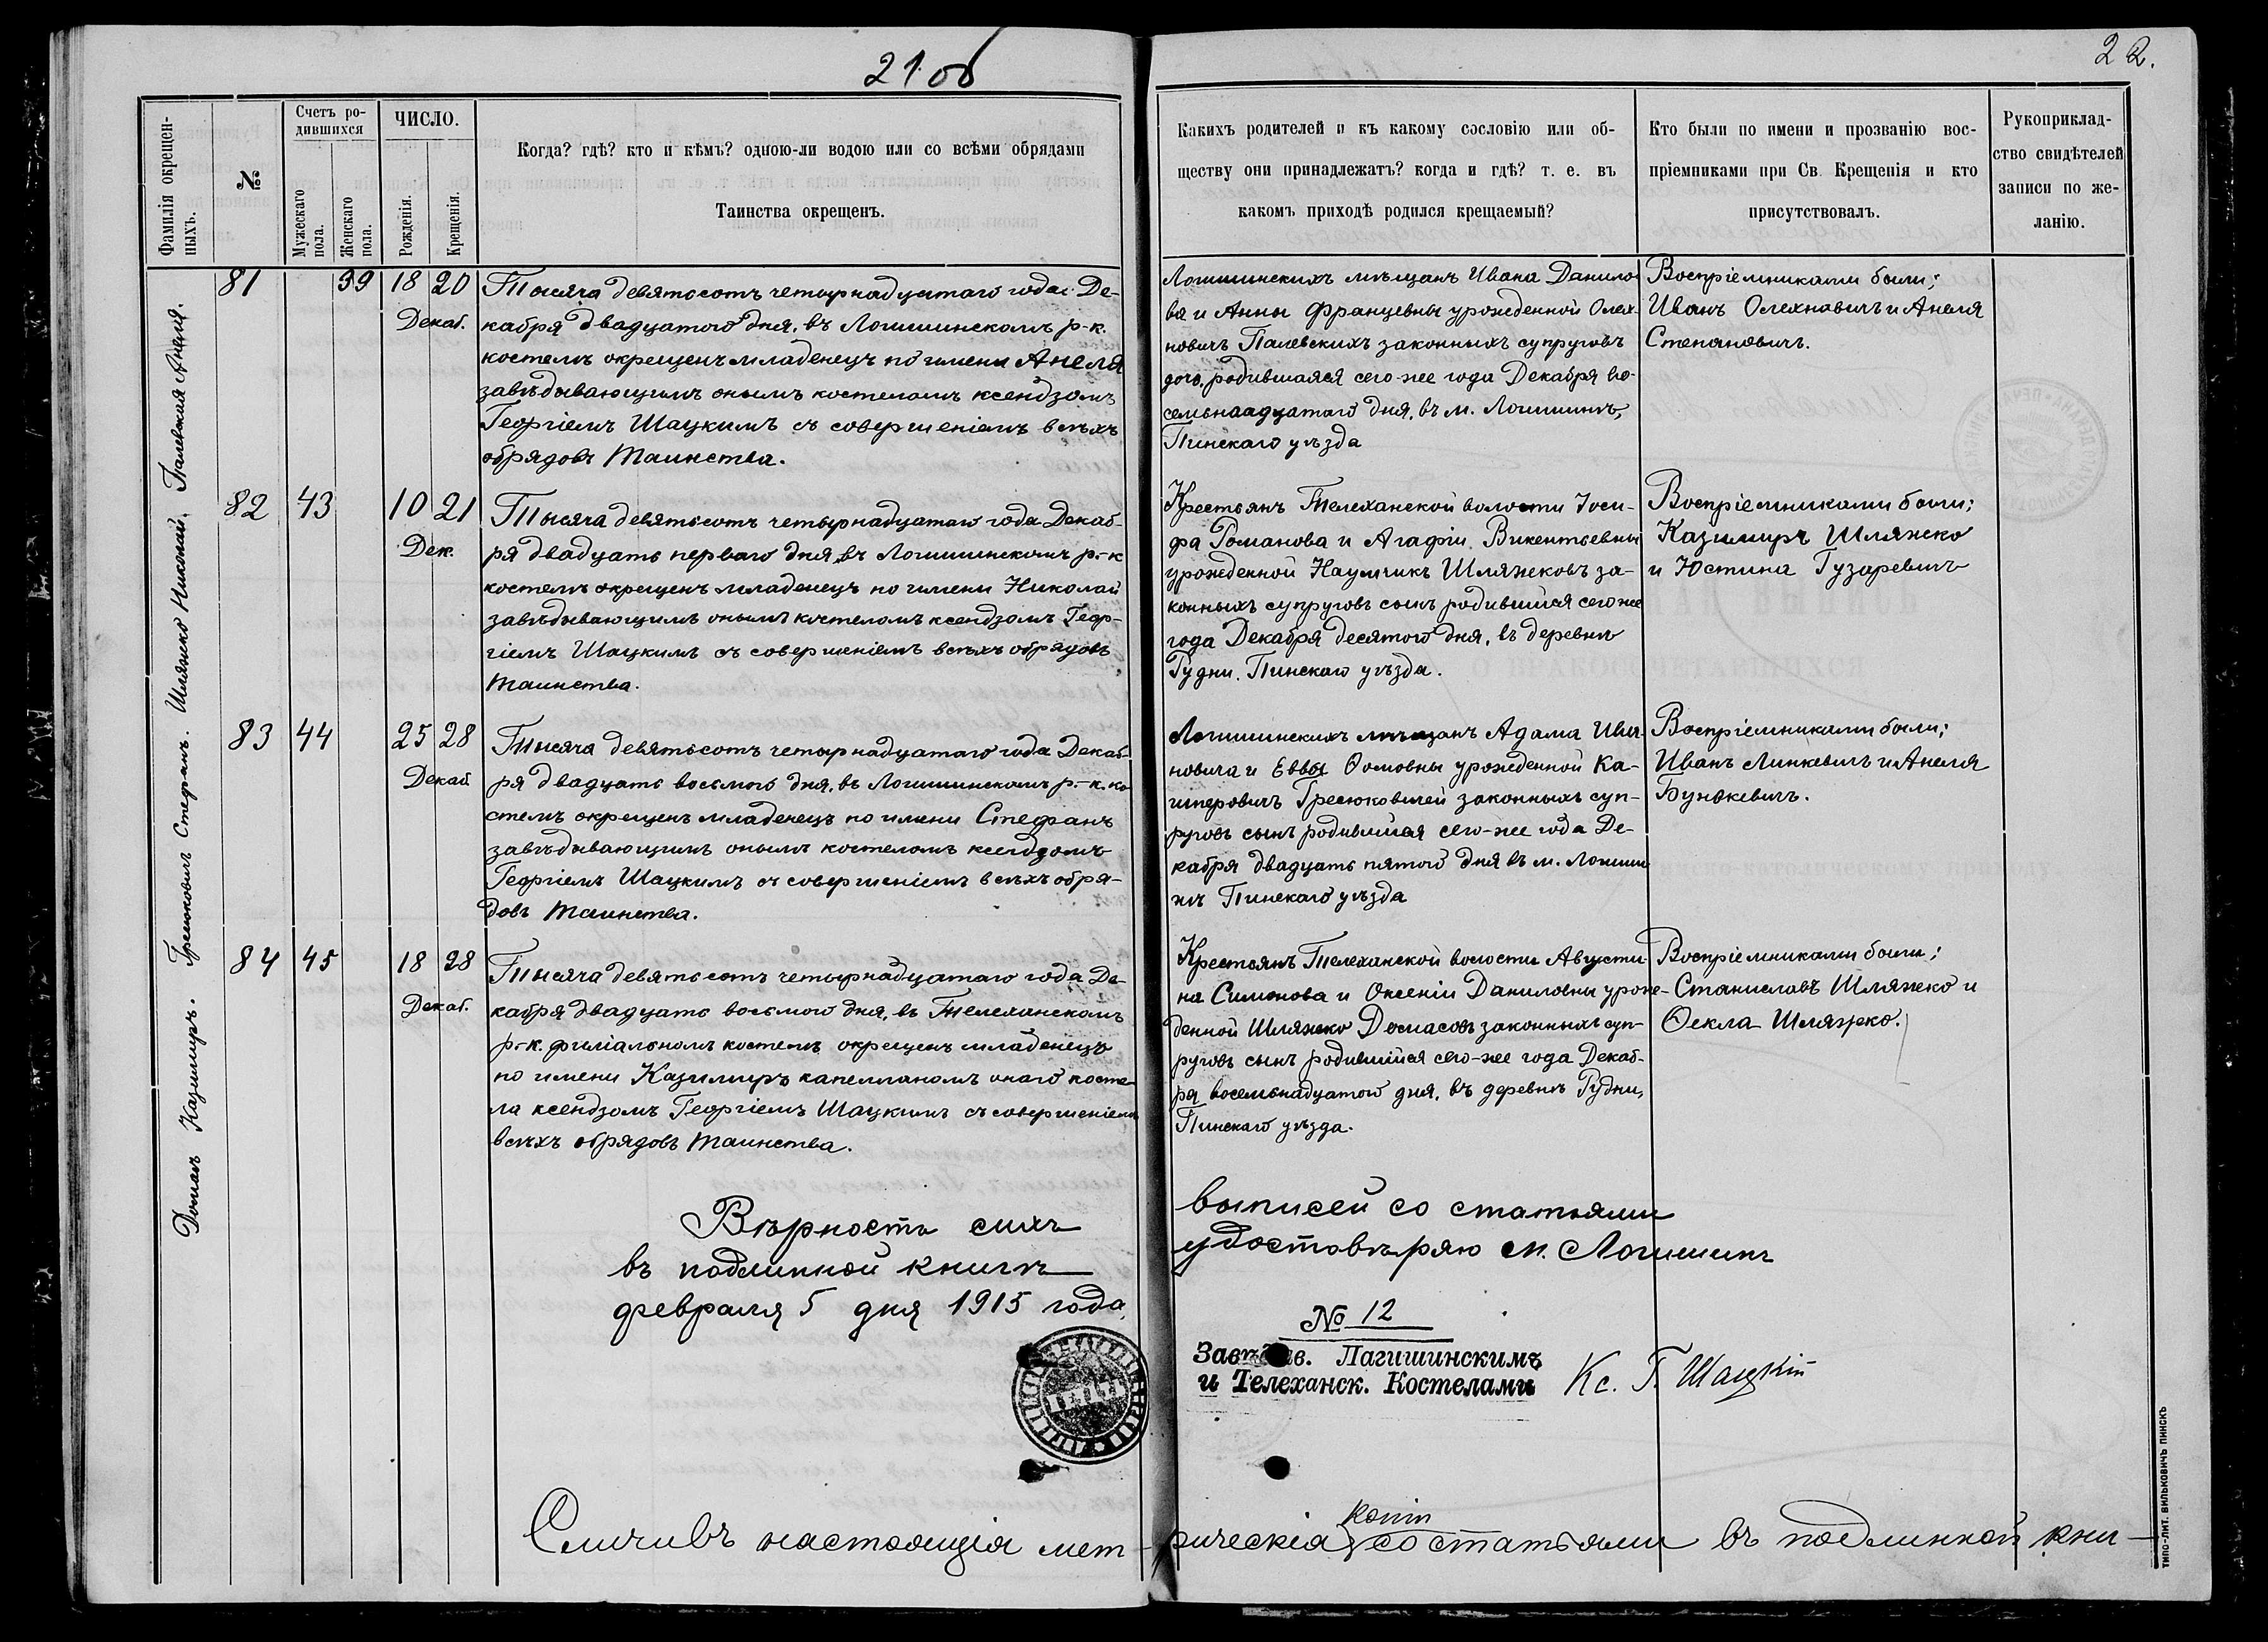 21 об
22.
Фамилія окрещен-
ныхъ.
№
Счетъ ро-
дившихся
Мужескаго
пола.
Женскаго
пола.
ЧИСЛО.
Рожденія.
Крещенія.
Когда? гдѣ? кто и кѣмъ? одною-ли водою или со всѣми обрядами
Таинства окрещенъ.
Какихъ родителей и къ какому сословію или об-
ществу они принадлежатъ? когда и гдѣ? т. е. въ
какомъ приходѣ родился крещаемый?
Кто были по имени и прозванію вос-
пріемниками при Св. Крещенія и кто
присутствовалъ.
Рукоприклад-
ство свидѣтелей
записи по же-
ланію.
Палевская Анеля.
81
39
18 20
Декаб.
Тысяча девятосотъ четырнадцатаго года Де-
кабря двадцатого дня, въ Логишинскомъ р-к.
костелѣ окрещенъ младенецъ по имени Анеля
завѣдывающимъ онымъ костеломъ ксендзомъ
Георгіемъ Шацкимъ съ совершеніемъ всѣхъ
обрядовъ Таинства.
Логишинскихъ мѣщанъ Ивана Данило
ва и Анны Францевны урожденной Олех-
новичъ Палевскихъ законныхъ супруговъ
дочь, родившаяся сего-же года Декабря во-
семьнаадцатаго дня, въ м. Логишинѣ,
Пинскаго уѣзда
Воспріемниками были;
Иванъ Олехновичъ и Анеля
Степановичъ.
Шляжко Николай.
82
43
10 21
Дек.
Тысяча девятьсотъ четырнадцатаго года Декаб-
ря двадцать перваго дня, въ Логишинскомъ р.-к
костелѣ окрещенъ младенецъ по имени Николай
завѣдывающимъ онымъ костеломъ ксендзомъ Геор-
гіемъ Шацкимъ съ совершеніемъ всѣхъ обрядовъ
Таинства.
Крестьянъ Телеханской волости Іоси-
фа Романова и Агафіи Викентьевны
урожденной Наумчикъ Шляжковъ за-
конныхъ супруговъ сынъ родившійся сегоже
года Декабря десятого дня, въ деревнѣ
Рудни. Пинскаго уѣзда.
Воспріемниками были;
Казимиръ Шляжко
и Юстина Гузаревичъ
Гресюковичъ Стефанъ.
83
44
25 28
Декаб.
Тысяча девятьсотъ четырнадцатаго года Декаб-
ря двадцать восьмого дня, въ Логишинскомъ р.-к. ко
стелѣ окрещенъ младенецъ по имени Стефанъ
завѣдывающимъ онымъ костеломъ ксендзомъ
Георгіемъ Шацкимъ съ совершеніемъ всѣхъ обря-
довъ Таинства.
Логишинскихъ мѣщанъ Адама Ива-
новича и Еввы Ѳомовны урожденной Ка-
шперовичъ Гресюковичей законныхъ суп-
руговъ сынъ родившійся сего-же года Де-
кабря двадцать пятого дня въ м. Логиши
нѣ Пинскаго уѣзда
Воспріемниками были;
Иванъ Линкевичъ и Анеля
Бунакевичъ.
Домасъ Казимиръ.
84
45
18 28
Декаб.
Тысяча девятьсотъ четырнадцатаго года Де-
кабря двадцать восьмого дня, въ Телеханскомъ
р-к. филіальномъ костелѣ окрещенъ младенецъ
по имени Казимиръ капелланомъ онаго косте-
ла ксендзомъ Георгіемъ Шацкимъ съ совершеніемъ
всѣхъ обрядовъ Таинства.
Крестьянъ Телеханской волости Августи-
на Симонова и Оксеніи Даниловны урож-
денной Шляжко Домасовъ законныхъ суп-
руговъ сынъ родившійся сего-же года Декаб-
ря восемьнадцатого дня, въ деревнѣ Рудни,
Пинскаго уѣзда.
Воспріемниками были;
Станиславъ Шляжко и
Ѳекла Шляжко.
Вѣрность сихъ выписей со статьями
въ подлинной книгѣ удостовѣряю м. Логишинъ
февраля 5 дня 1915 года
№ 12
Завѣдыв. Лагишинскимъ
и Телеханск. Костелами
Кс. Г. Шацкій
копіи
Сличивъ настоящія метрическія со статьями въ подлинной кни-
ТИПО-ЛИТ. ВИЛЬКОВИЧЪ ПИНСКЪ